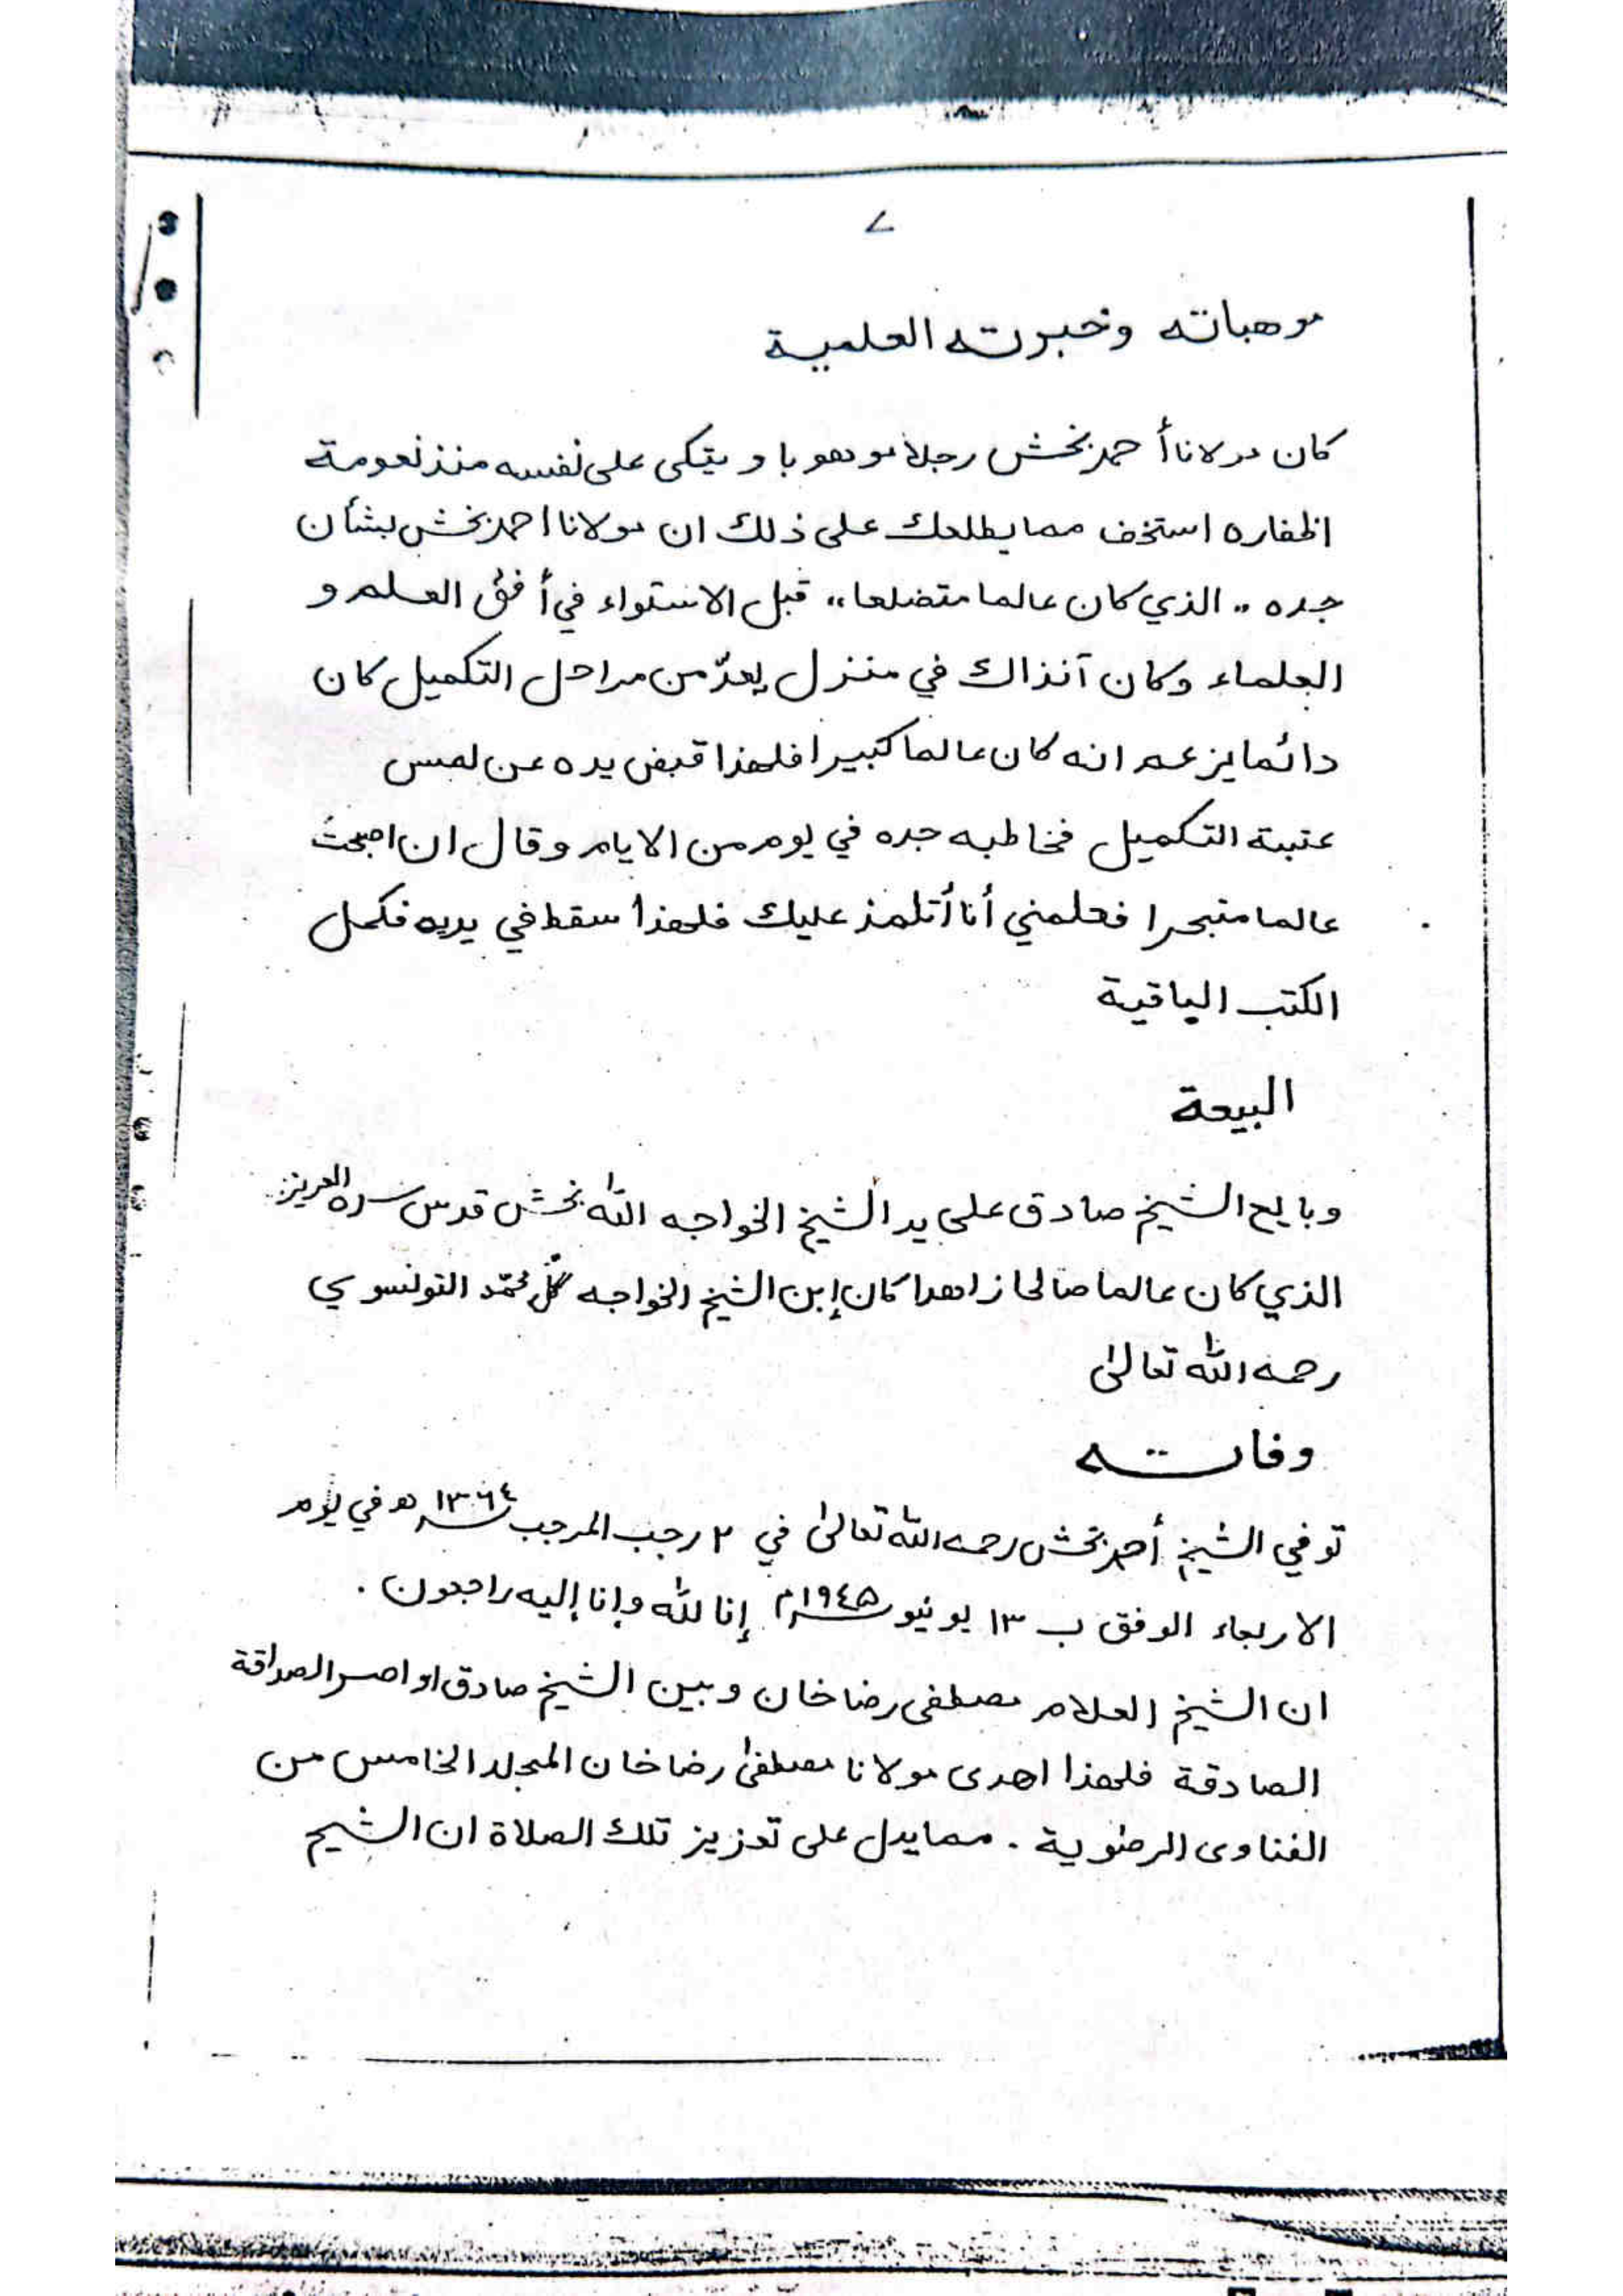 ٧
موهباته وخبرته العلمية
كان مولانا أحمد بخش رجلا موهوبا و يتكى على نفسه منذ نعومة
اظفاره استخف مما يطلعك على ذلك ان مولانا احمد بخش بشأن
جده ،، الذي كان عالما متضلعا ،، قبل الاستواء في أفق العلم و
العلماء وكان آنذاك في منزل يعدّ من مراحل التكميل كان
دائما يزعم انه كان عالما كبيرا فلهذا قبض يده عن لمس
عتبة التكميل فخاطبه جده في يوم من الايام وقال ان اصبحت
عالما متبحرا فعلمني أنا أتلمذ عليك فلهذا سقط في يديه فكمل
الكتب الباقية
البيعة
وبايع الشيخ صادق على يد الشيخ الخواجه الله بخش قدس سره العزيز
الذي كان عالما صالحا زاهدا كان إبن الشيخ الخواجه گل محمّد التونسوي
رحمه الله تعالىٰ
وفاته
توفي الشيخ أحمد بخش رحمه الله تعالىٰ في ٢ رجب المرجب ١٣٦٤؁ هـ في يوم
الاربعاء الوفق ب ١٣ يونيو ١٩٤٥؁م إنا لله وإنا إليه راجعون .
ان الشيخ العلام مصطفى رضا خان وبين الشيخ صادق اواصر الصداقة
الصادقة فلهذا اهدى مولانا مصطفىٰ رضا خان المجلد الخامس من
الفتاوى الرضوية . مما يدل على تعزيز تلك الصلاة ان الشيخ